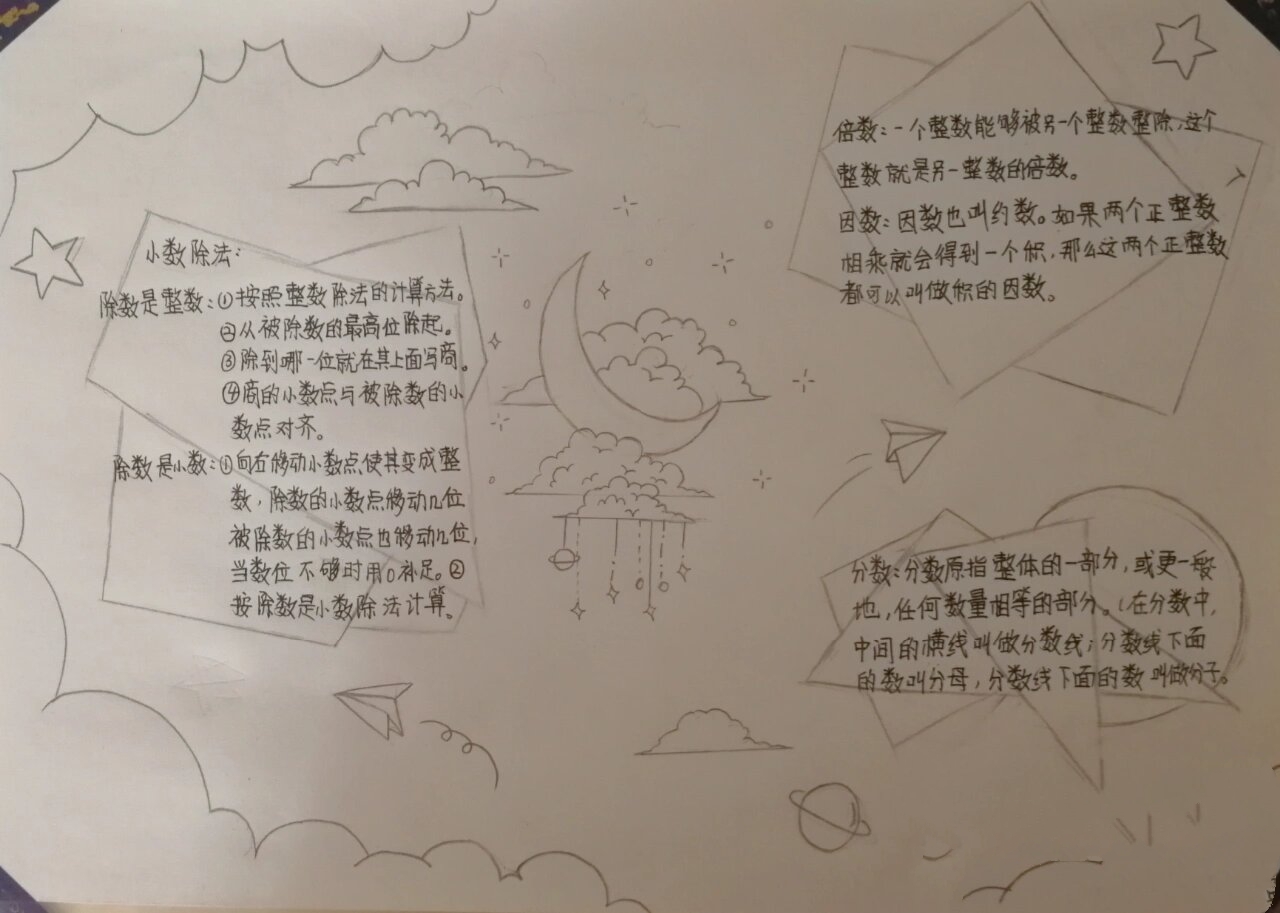 小数除法:
除数是整数:①按照整数除法的计算方法。
②从被除数的最高位除起。
③除到哪一位就在其上面写商。
④商的小数点与被除数的小
数点对齐。
除数是小数:①向右移动小数点,使其变成整
数,除数的小数点移动几位
被除数的小数点也移动几位,
当数位不够时用0补足。②
按除数是小数除法计算。
倍数:一个整数能够被另一个整数整除,这个
整数就是另一整数的倍数。
因数:因数也叫约数。如果两个正整数
相乘就会得到一个积,那么这两个正整数
都可以叫做积的因数。
分数:分数原指整体的一部分,或更一般
地,任何数量相等的部分。(在分数中,
中间的横线叫做分数线;分数线下面
的数叫分母,分数线下面的数叫做分子。